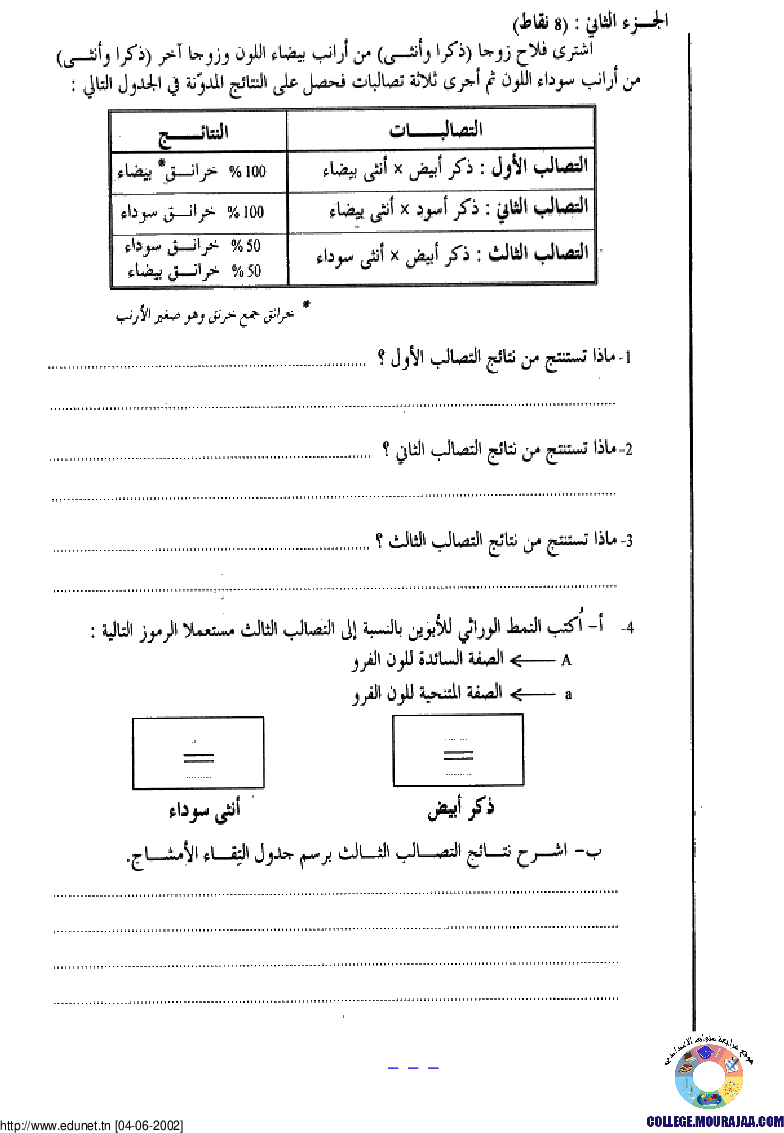 الجزء الثاني : (8 نقاط)
اشترى فلاح زوجا (ذكرا وأنثى) من أرانب بيضاء اللون وزوجا آخر (ذكرا وأنثى)
من أرانب سوداء اللون ثم أجرى ثلاثة تصالبات فحصل على النتائج المدوّنة في الجدول التالي :
التصالبات النتائج
التصالب الأول : ذكر أبيض × أنثى بيضاء 100 % خرانق* بيضاء
التصالب الثاني : ذكر أسود × أنثى بيضاء 100 % خرانق سوداء
التصالب الثالث : ذكر أبيض × أنثى سوداء 50 % خرانق سوداء
50 % خرانق بيضاء
* خرانق جمع خرنق وهو صغير الأرنب
1- ماذا تستنتج من نتائج التصالب الأول ؟
2- ماذا تستنتج من نتائج التصالب الثاني ؟
3- ماذا تستنتج من نتائج التصالب الثالث ؟
4- أ- أُكتب النمط الوراثي للأبوين بالنسبة إلى التصالب الثالث مستعملا الرموز التالية :
A ← الصفة السائدة للون الفرو
a ← الصفة المتنحية للون الفرو
ذكر أبيض أنثى سوداء
ب- اشرح نتائج التصالب الثالث برسم جدول التقاء الأمشاج.
http://www.edunet.tn [04-06-2002]
COLLEGE.MOURAJAA.COM